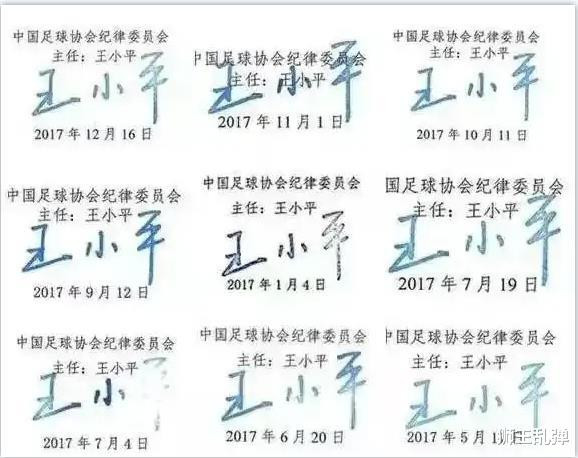 中国足球协会纪律委员会
主任：王小平
王小平
2017 年 12 月 16 日
中国足球协会纪律委员会
主任：王小平
王小平
2017 年 11 月 1 日
中国足球协会纪律委员会
主任：王小平
王小平
2017 年 10 月 11 日
中国足球协会纪律委员会
主任：王小平
王小平
2017 年 9 月 12 日
中国足球协会纪律委员会
主任：王小平
王小平
2017 年 1 月 4 日
国足球协会纪律委员会
主任：王小平
王小平
2017 年 7 月 19 日
中国足球协会纪律委员会
主任：王小平
王小平
2017 年 7 月 4 日
中国足球协会纪律委员会
主任：王小平
王小平
2017 年 6 月 20 日
中国足球协会纪律委员会
主任：王小平
王小平
2017 年 5 月 日
师王乱弹